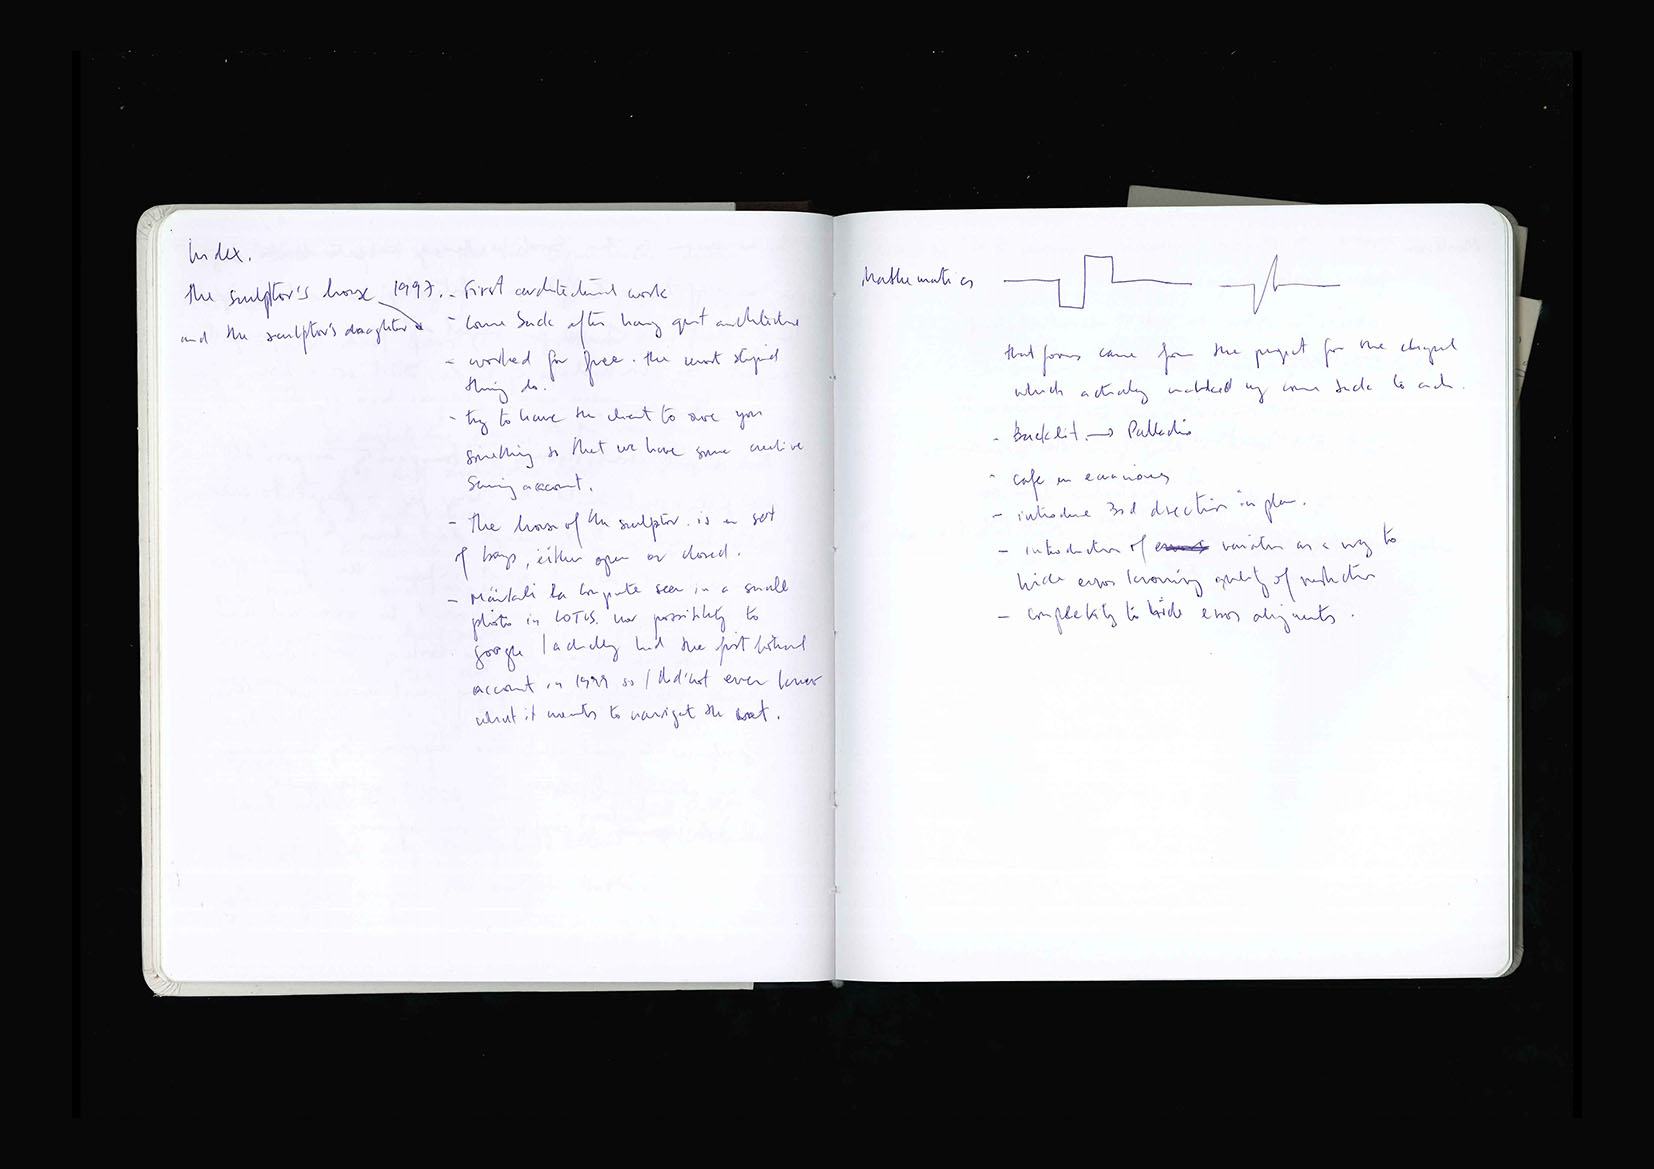 Index.
the sculptor's house 1997.
and the sculptor's daughter
- First architectural work
- come back after having quit architecture
- worked for free. the most stupid
thing do.
- try to have the client to owe you
something so that we have some creative
saving account.
- the house of the sculptor is a set
of bays, either open or closed.
- seen in a small
photo in LOTUS. nor possibility to
google I actually had the first hotmail
account in 1999 so I did not even know
what it means to navigate the
Mathematics
that forms came from the project for the
which actually my come back to
- Backlit → Palladio
- cafe en
- introduce 3rd direction in plan.
- introduction of variation as a way to
hide error knowing quality of
- complexity to hide error aligments.